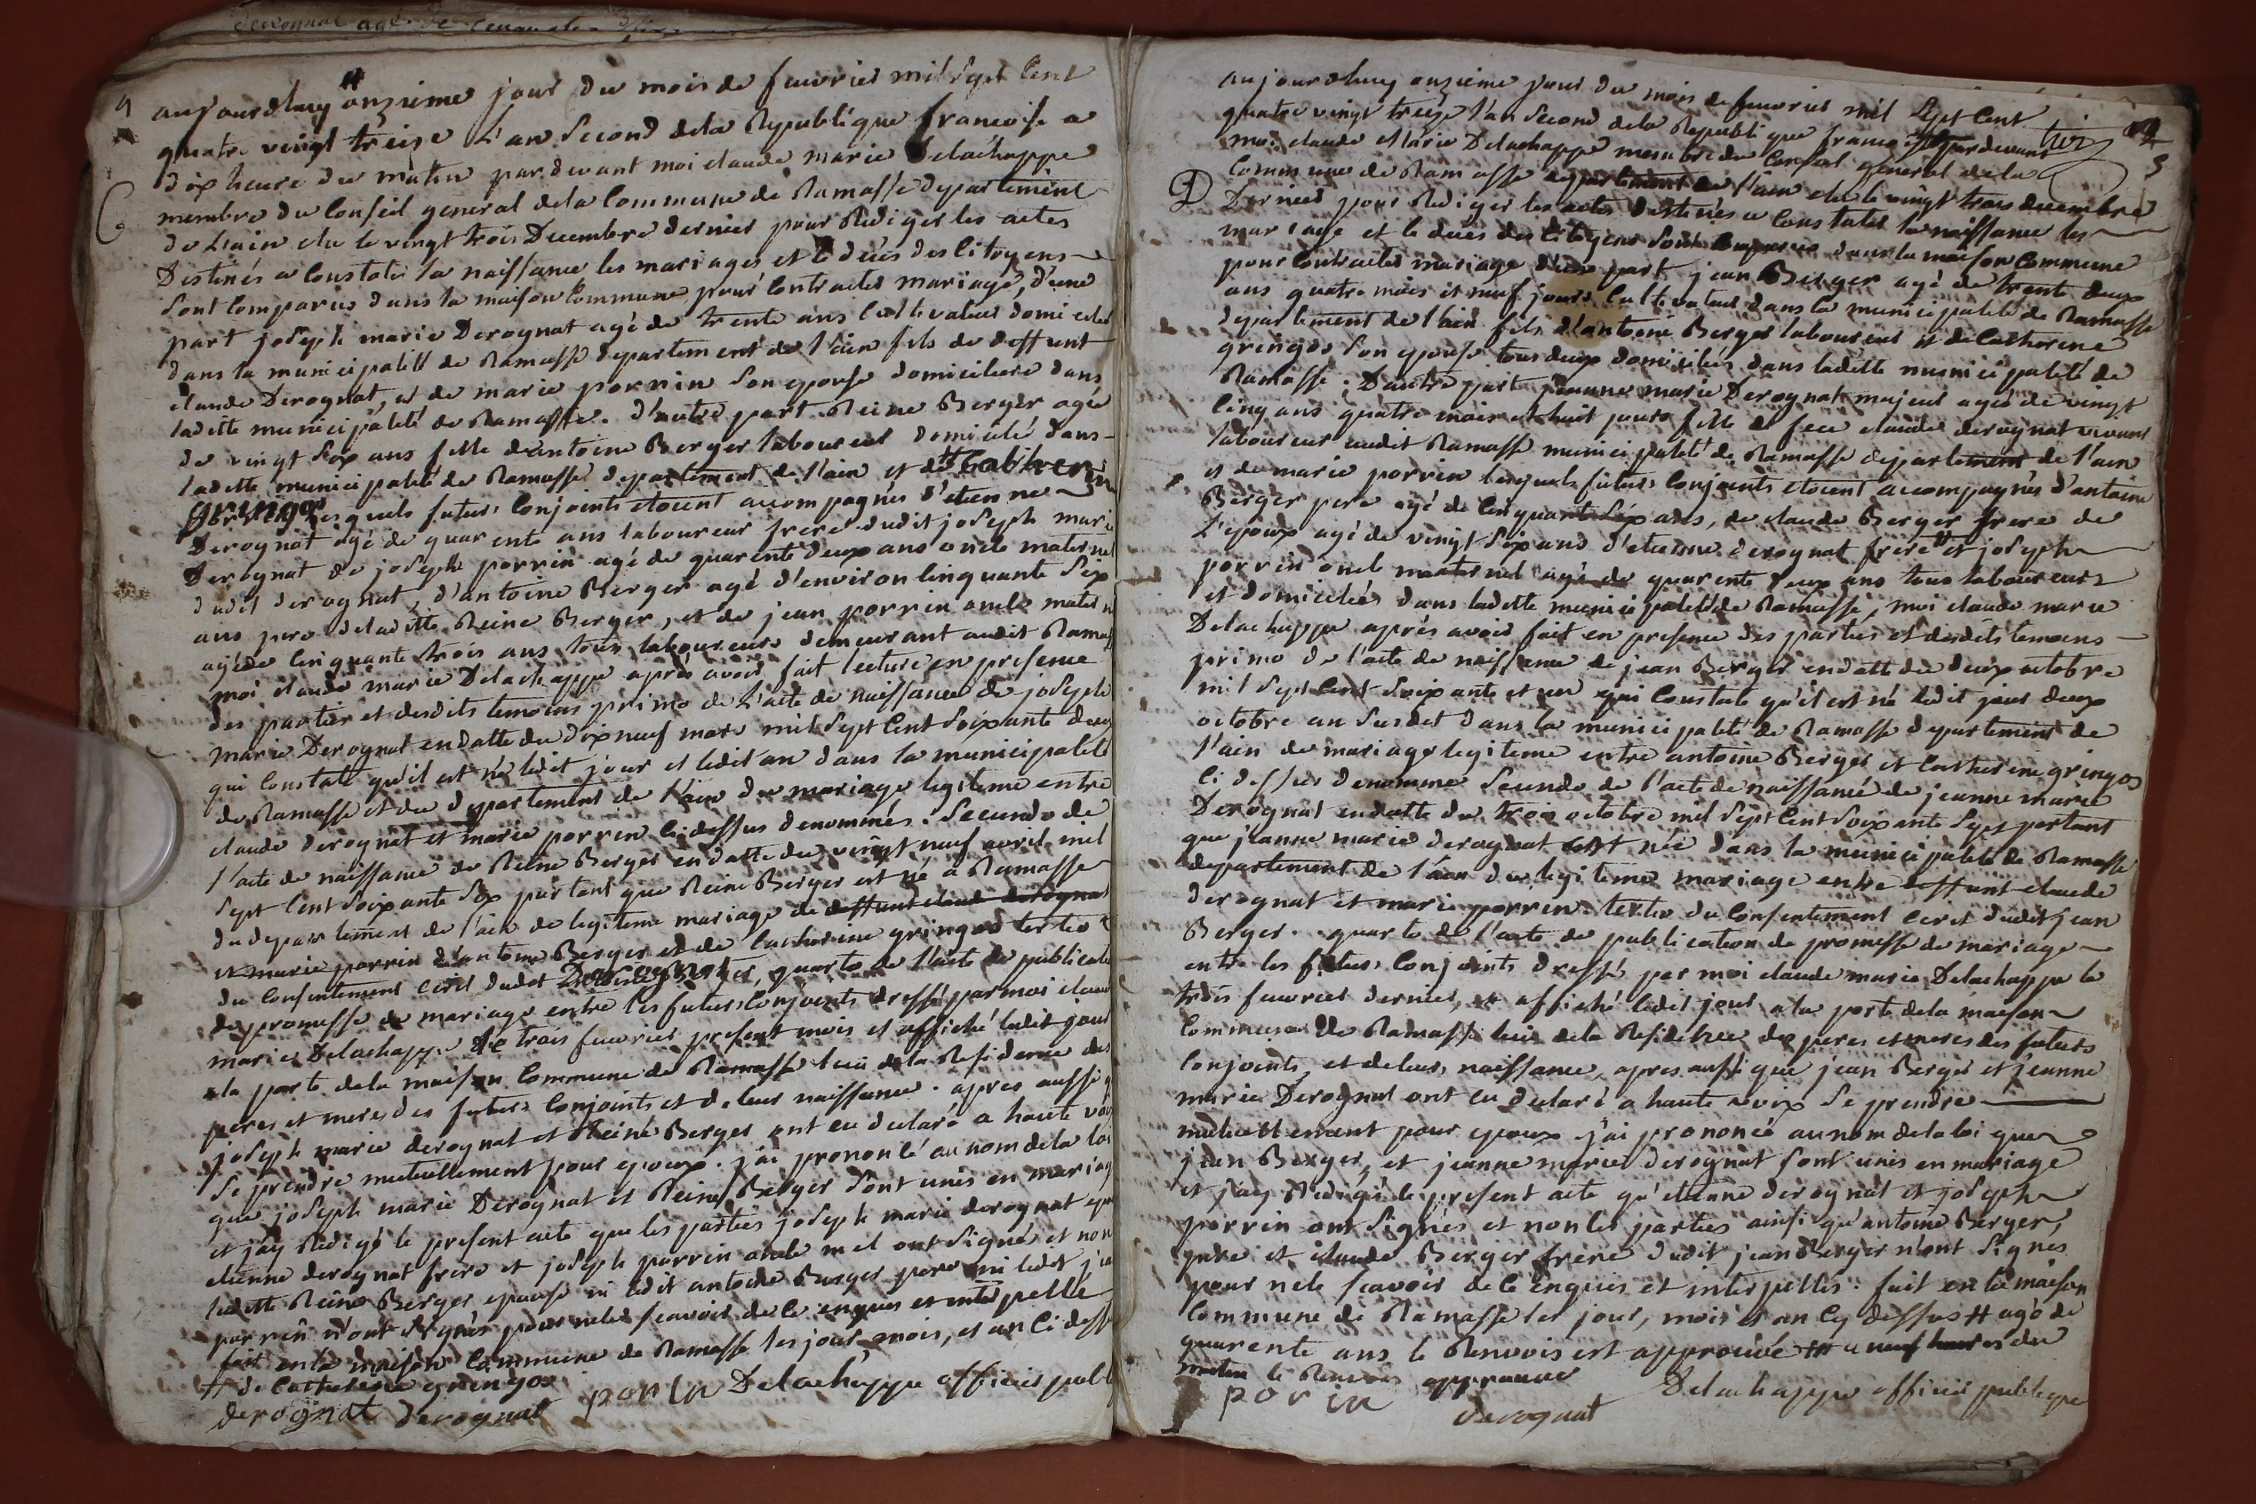 aujourdhuy onzieme jour du mois de fevrier mil sept cent
quatre vingt treize L'an second dela Republique francoise a
dix heure du matin par devant moi claude marie Delachappe
membre du Conseil general dela Commune de Ramasse departement
de L'ain elu le vingt trois Decembre dernier pour Rediger les actes
Destinés a Constater la naissance les mariages et le décés des Citoyens
sont Comparus dans la maison Commune pour Contracter mariage, d'une
part joseph marie Derognat agé de trente ans Cultivateur domicilié
dans la municipalité de Ramasse departement de l'ain fils de deffunt
claude Derognat, et de marie porrin son epouse domiciliere dans
ladette municipalité de Ramasse. D'autre part Reine Berger agée
de vingt six ans fille d'antoine Berger laboureur domicilié dans
ladette municipalité de Ramasse departement de l'ain et de Catherin
gringoz lesquels futurs Conjoints etoient accompagnés d'etienne
Derognat agé de quarente ans laboureur frere dudit joseph marie
Derognat de joseph porrin agé de quarente deux ans oncle maternel
dudit derognat, d'antoine Berger agé d'environ Cinquante six
ans pere deladitte Reine Berger, et de jean porrin oncle matern
agé de Cinquante trois ans tous laboureurs demeurant audit Ramass
moi claude marie Delachappe après avoir fait lecture en presence
des parties et desdits temoins primo de L'acte de naissance de joseph
marie Derognat en datte du dix neuf mars mil sept Cent soixante deux
qui Constate qu'il est né ledit jour et ledit an dans la municipalité
de Ramasse et du departement de l'ain du mariage legitime entre
claude derognat et marie porrin ci dessus denommés. Secundo de
l'acte de naissance de Reine Berger en datte du vingt neuf avril mil
sept Cent soixante six portant que Reine Berger est né a Ramasse
du departement de l'ain de legitime mariage de deffunt claude derognat
et marie porrin d'antoine Berger et de Catherine gringoz tertio
du Consentement Ceril dudit Derognat, quarto de l'acte de publicatio
de promesse de mariage entre les futurs Conjoints dressé par moi claud
marie Delachappe le trois fevrier present mois et affiché ledit jour
a la porte dela maison Commune de Ramasse lieu de la Residence des
peres et meres des futurs Conjoints et de leur naissance. apres aussi q
joseph marie derognat et Reine Berger ont eu declaré a haute voi
se prendre mutuellement pour epoux. j'ai prononcé au nom dela loi
que joseph marie Derognat et Reine Berger sont unis en mariag
et j'ay Redigé le present acte que les parties joseph marie derognat epo
etienne derognat frere et joseph porrin oncle mel ont signés et non
ladette Reine Berger epouse ni ledit antoine Berger pere ni ledit jea
porrin n'ont signés pour nele scavoir de ce enquis et interpellé
fait en la maison Commune de Ramasse les jour, mois, et an ci dessu
# de Catherine gringoz
derognat Derognat porrin Delachappe officier publ
aujourdhuy onzieme jour du mois de fevrier mil sept Cent
quatre vingt treize l'an second dela Republique francoise pardevant
moi claude Marie Delachappe membre du Conseil general dela
Commune de Ramasse departement de l'ain elu le vingt trois decembre
Dernier pour Rediger les actes destinés a Constater la naissance les
mariage et le décés des Citoyens sont Comparus dans la maison Commune
pour Contracter mariage d'une part jean Berger agé de trent deux
ans quatre mois et neuf jours Cultivateur dans la municipalité de Ramasse
departement de l'ain fils d'antoine Berger laboureur et de Catherine
gringoz son epouse tous deux domiciliés dans ladette municipalité de
Ramasse. D'autre part jeanne marie Derognat majeur agée de vingt
Cinq ans quatre mois et huit jours fille de feu claude derognat vivant
laboureur audit Ramasse municipalité de Ramasse departement de l'ain
et de marie porrin lesquels futurs Conjoints etoient accompagnés d'antoine
Berger pere agé de Cinquante six ans, de claude Berger frere de
L'epoux agé de vingt six ans d'etienne derognat frere # et joseph
porrin oncle maternel agé de quarente deux ans tous laboureurs
et domiciliés dans ladette municipalité de Ramasse, moi claude marie
Delachappe après avoir fait en presence des parties et desdits temoins
primo de l'acte de naissance de jean Berger en datte du deux octobre
mil sept Cent soixante et un qui Constate qu'il est né ledit jour deux
octobre an susdit dans la municipalité de Ramasse departement de
l'ain de mariage legitime entre antoine Berger et Catherine gringoz
Ci dessus denommé Secundo de l'acte de naissance de jeanne marie
Derognat en datte du trois octobre mil sept Cent soixante sept portant
que jeanne marie derognat est née dans la municipalité de Ramasse
departement de l'ain du legitime mariage entre deffunt claude
derognat et marie porrin. tertio du Consentement Ceril dudit jean
Berger. quarto de l'acte de publication de promesse de mariage
entre les futurs Conjoints dressé par moi claude marie Delachappe le
trois fevrier dernier, et affiché ledit jour a la porte dela maison
Commune de Ramasse lieu dela Residence des peres et meres des futurs
Conjoints, et de leur naissance, apres aussi que jean Berger et jeanne
marie Derognat ont eu declaré a haute voix se prendre
mutuellement pour epoux j'ai prononcé au nom dela loi que
jean Berger, et jeanne marie derognat sont unis en mariage
et j'ay Redigé le present acte qu'etienne derognat et joseph
porrin ont signés et non les parties ainsi qu'antoine Berger,
pere et claude Berger frere dudit jean Berger n'ont signés
pour nele scavoir de ce enquis et interpellés. fait en la maison
Commune de Ramasse les jour, mois et an Cy dessus # agé de
quarente ans le Renvois est approuvé # a neuf heures du
matin le Renvois approuvé
porrin derognat Delachappe officier publique